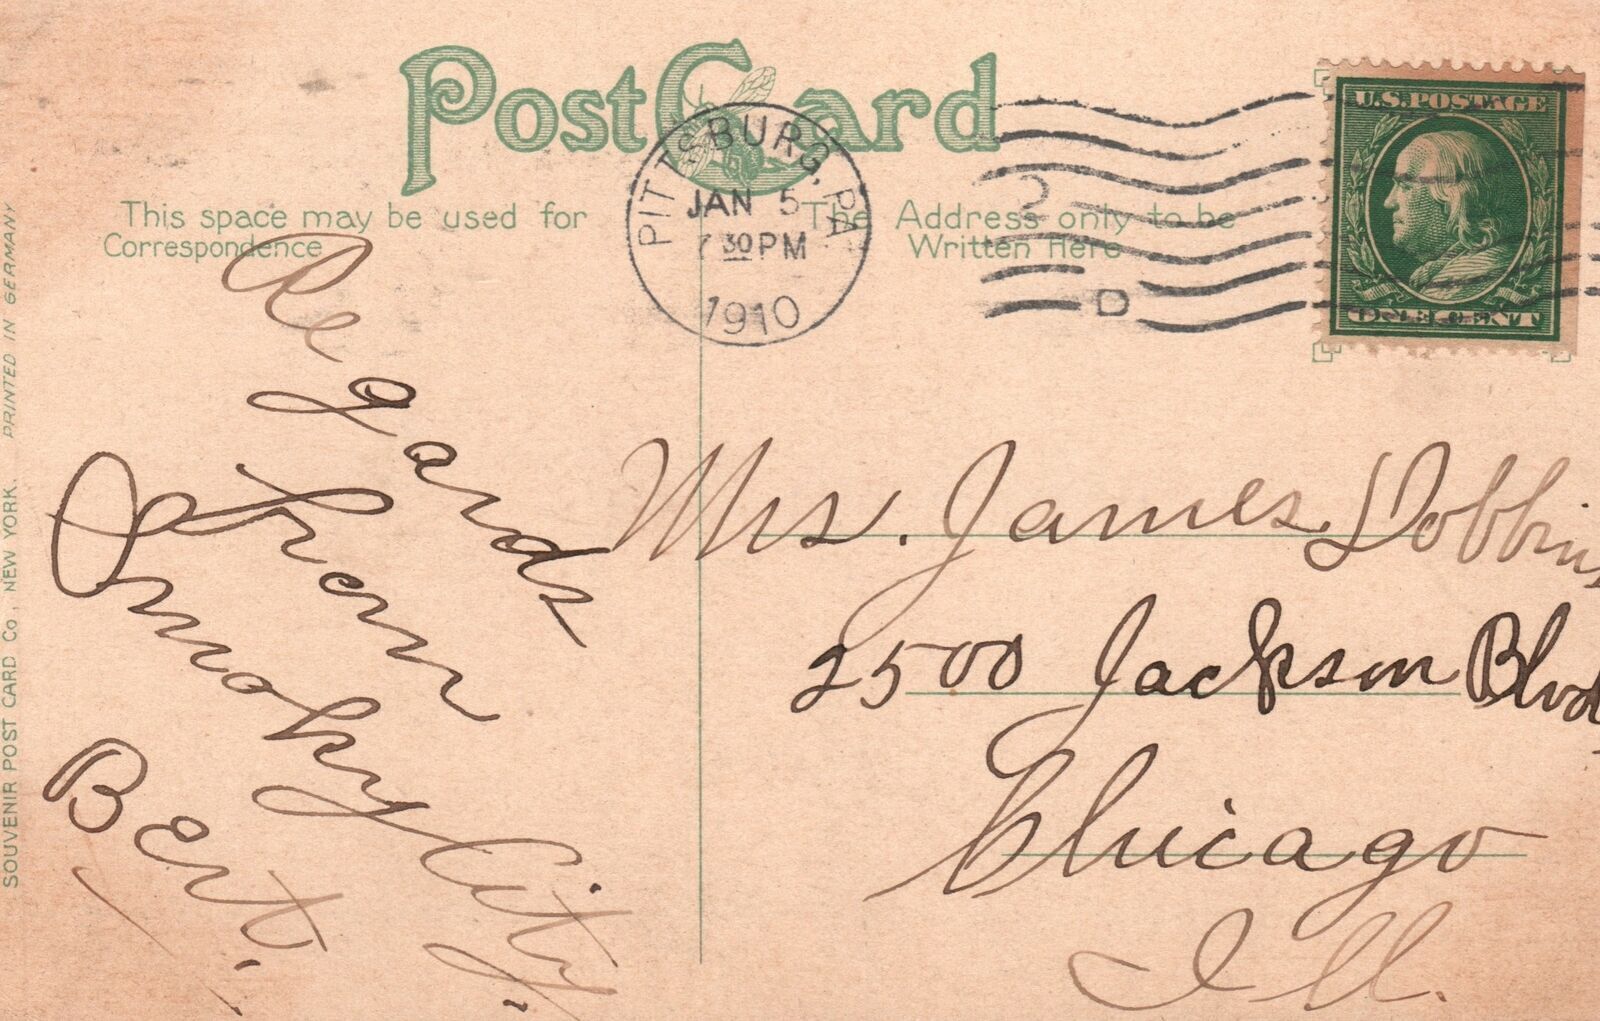 PostCard
This space may be used for
Correspondence
The Address only to be
Written Here
PITTSBURG, PA
JAN 5
7 30 PM
1910
D
U.S. POSTAGE
ONE CENT
Regards
from
Smoky City.
Bert.
Mrs. James Dobbins
2500 Jackson Blvd
Chicago
Ill.
SOUVENIR POST CARD CO., NEW YORK. PRINTED IN GERMANY